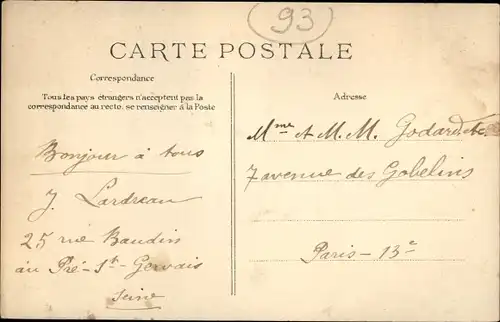 93
CARTE POSTALE
Correspondance
Tous les pays étrangers n'acceptent pas la
correspondance au recto. se renseigner à la Poste
Bonjour à tous
J. Lardreau
25 rue Baudin
au Pré-St-Gervais
Seine
Adresse
Mme et M. M. Godard
7 avenue des Gobelins
Paris-13e